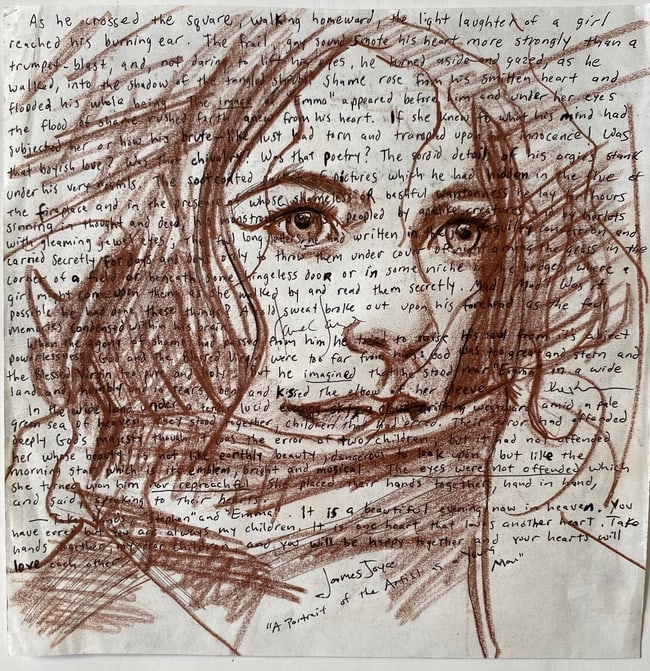 As he crossed the square, walking homeward, the light laughter of a girl
reached his burning ear. The frail, gay sound smote his heart more strongly than a
trumpet-blast, and, not daring to lift his eyes, he turned aside and gazed, as he
walked, into the shadow of the tangled shrubs. Shame rose from his smitten heart and
flooded his whole being. The image of "Emma" appeared before him and under her eyes
the flood of shame rushed forth anew from his heart. If she knew to what his mind had
subjected her or how his brute-like lust had torn and trampled upon her innocence! Was
that boyish love? Was that chivalry? Was that poetry? The sordid details of his orgies stank
under his very nostrils. The soot-coated packet of pictures which he had hidden in the flue of
the fireplace and in the presence of whose shameless or bashful wantonness he lay hours
sinning in thought and deed; monstrous peopled by creatures and by harlots
with gleaming jewel eyes; the foul long letters he had written in the guilty confession and
carried secretly for days and days only to throw them under cover of among the grass in the
corner of a or beneath some hingeless door or in some niche in the hedges where a
girl might come upon them as she walked by and read them secretly. Mad! Mad! Was it
possible he had done these things? A cold sweat broke out upon his forehead as the foul
memories condensed within his brain.
When the agony of shame had passed from him he to raise his soul from its abject
powerlessness. God and the Blessed Virgin were too far from him: God was too great and stern and
the Blessed Virgin too pure and holy. But he imagined that he stood near "Emma" in a wide
land and, humbly and in tears, bent and kissed the elbow of her sleeve.
In the wide land under a tender lucid evening sky, a cloud drifting westward amid a pale
green sea of heaven, they stood together, children that had erred. Their error had offended
deeply God's majesty though it was the error of two children, but it had not offended
her whose beauty is not like earthly beauty, dangerous to look upon, but like the
morning star which is its emblem, bright and musical. The eyes were not offended which
she turned upon him nor reproachful. She placed their hands together, hand in hand,
and said, speaking to their hearts.
— Take hands, "Stephen" and "Emma". It is a beautiful evening now in heaven. You
have erred but you are always my children. It is one heart that loves another heart. Take
hands together, my dear children, and you will be happy together and your hearts will
love each other.
James Joyce
"A Portrait of the Artist as a Young Man"